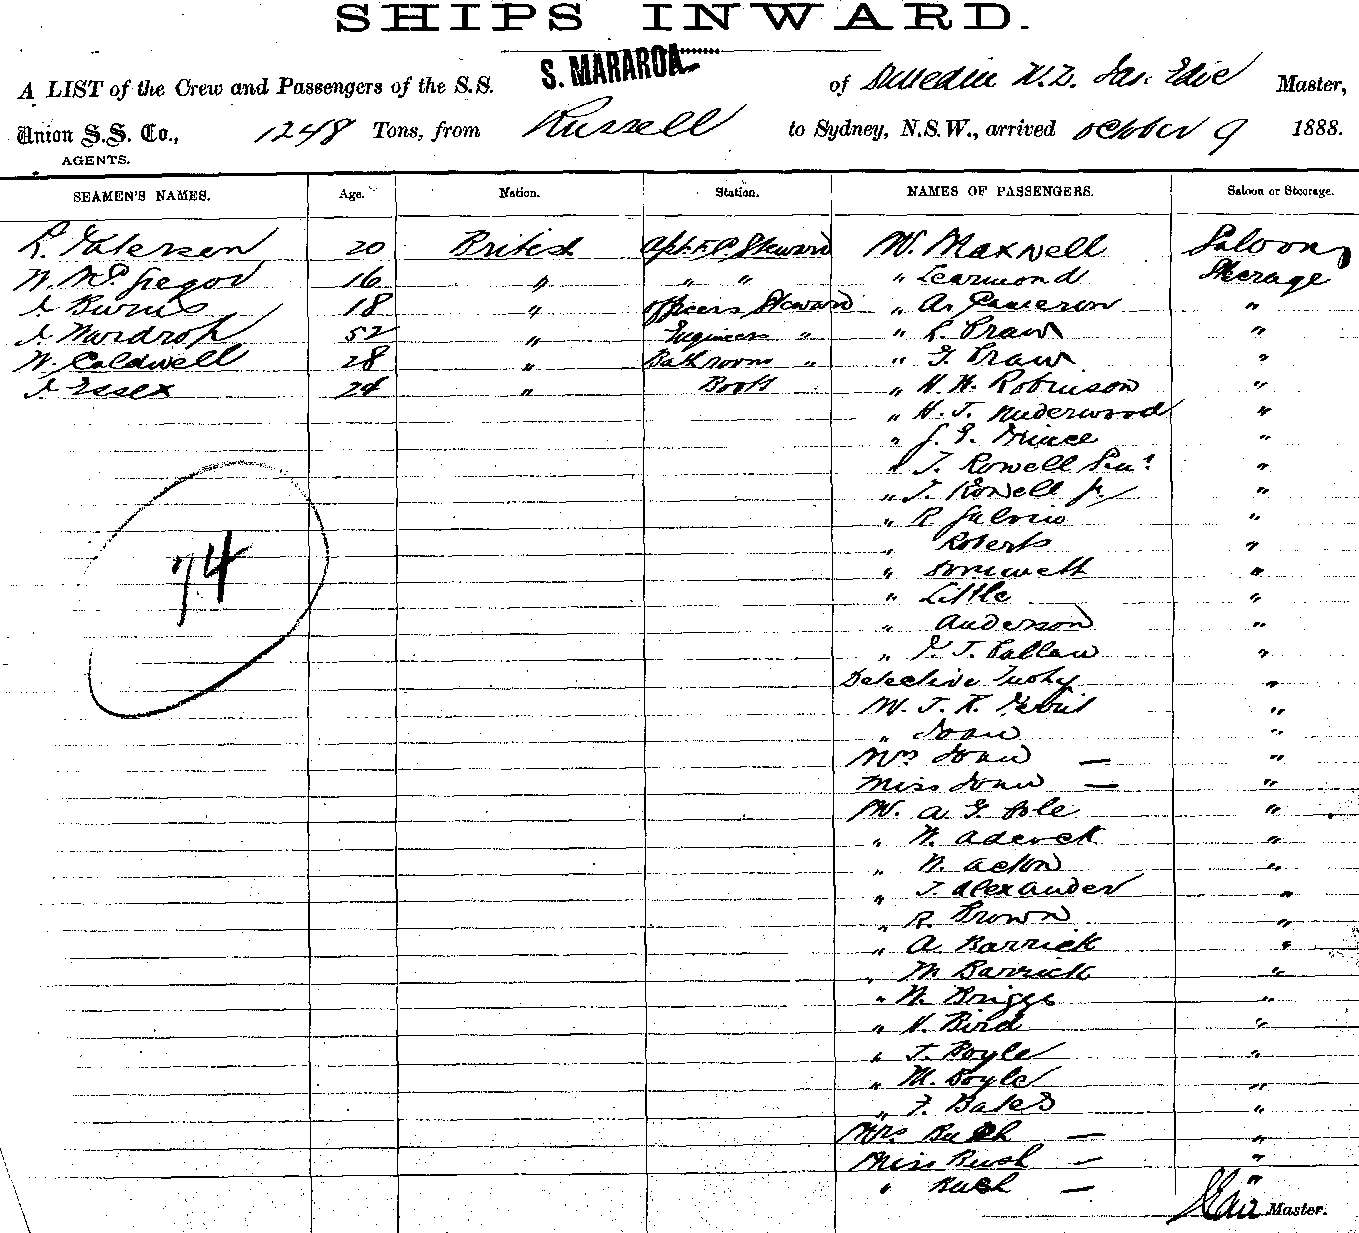 SHIPS INWARD.
A LIST of the Crew and Passengers of the S.S. S. MARAROA of Dunedin N.Z. Jas. Edie Master,
Union S.S. Co., 1248 Tons, from Russell to Sydney, N.S.W., arrived October 9 1888.
AGENTS.
SEAMEN'S NAMES. Age. Nation. Station. NAMES OF PASSENGERS. Saloon or Steerage.
20 British Steward M. Maxwell Saloon
16 " " " " Learmond Steerage
J Burns 18 " Officers Steward " A. Cameron "
J Wardrop 52 " Engineers " " "
W. Caldwell 28 " Bathroom " " "
J Essex 24 " Boots " H. H. Robinson "
" H. J. Underwood "
" J. G. Prince "
" T. Rowell Senr "
" T. Rowell Jr "
" R "
" Roberts "
" "
" Little "
" Anderson "
" "
Detective Tuohy "
M. J. K. "
" "
Mrs — "
Miss — "
M. A. G. Pole "
" W. Adcock "
" W. Acton "
" J. Alexander "
" R. Brown "
" A Barrick "
" M Barrick "
" W. Briggs "
" H. Bird "
" T. Boyle "
" M. Boyle "
" F. Bates "
Mrs Bush — "
Miss Bush — "
" Bush — "
74
Master.